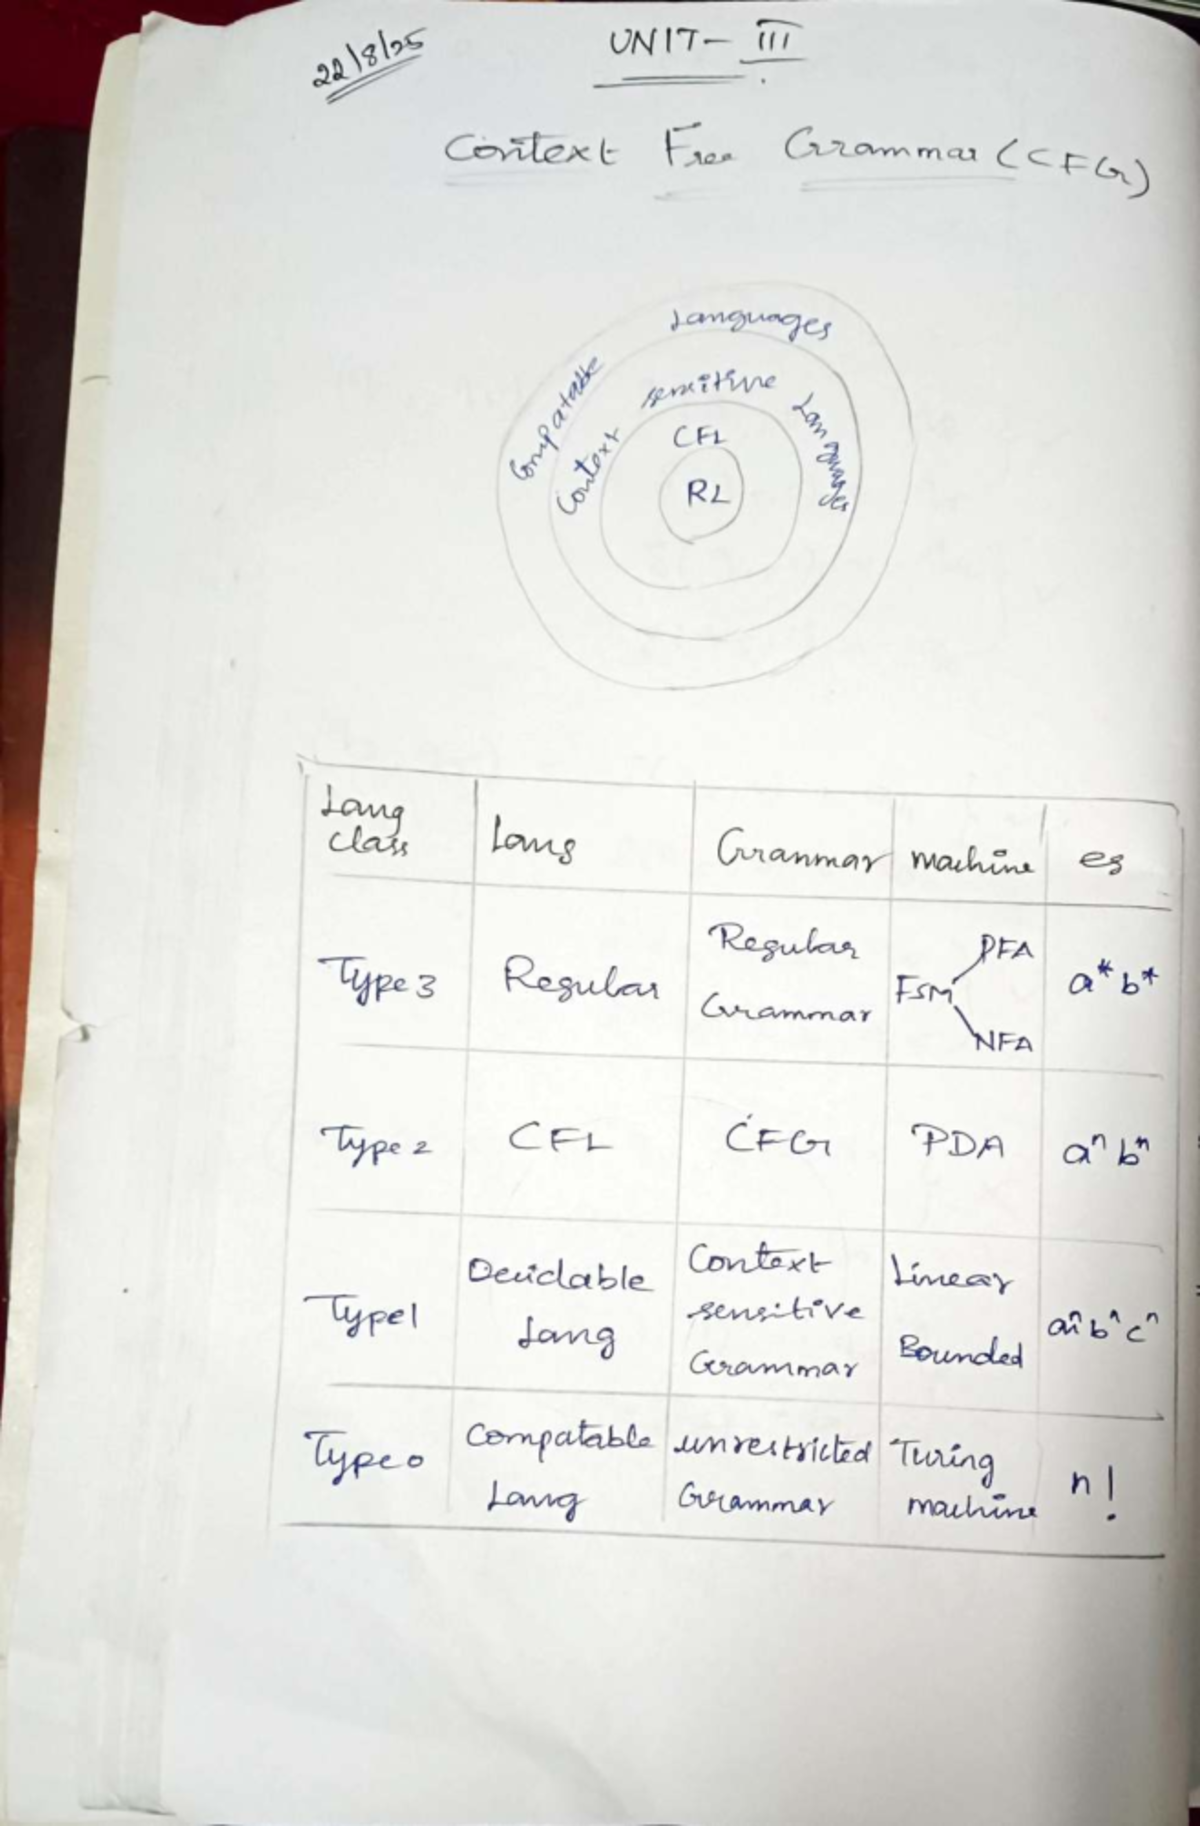 22/8/25
UNIT - III
Context Free Grammar (CFG)
Languages
Compatable
sensitive
Context
Languages
CFL
RL
Lang class
Lang
Granmar
machine
eg
Type 3
Regular
Regular Grammar
FSM
DFA
NFA
a* b*
Type 2
CFL
CFG
PDA
aⁿ bⁿ
Type 1
Decidable Lang
Context sensitive Grammar
Linear Bounded
aⁿ bⁿ cⁿ
Type 0
Compatable Lang
unrestricted Grammar
Turing machine
n!